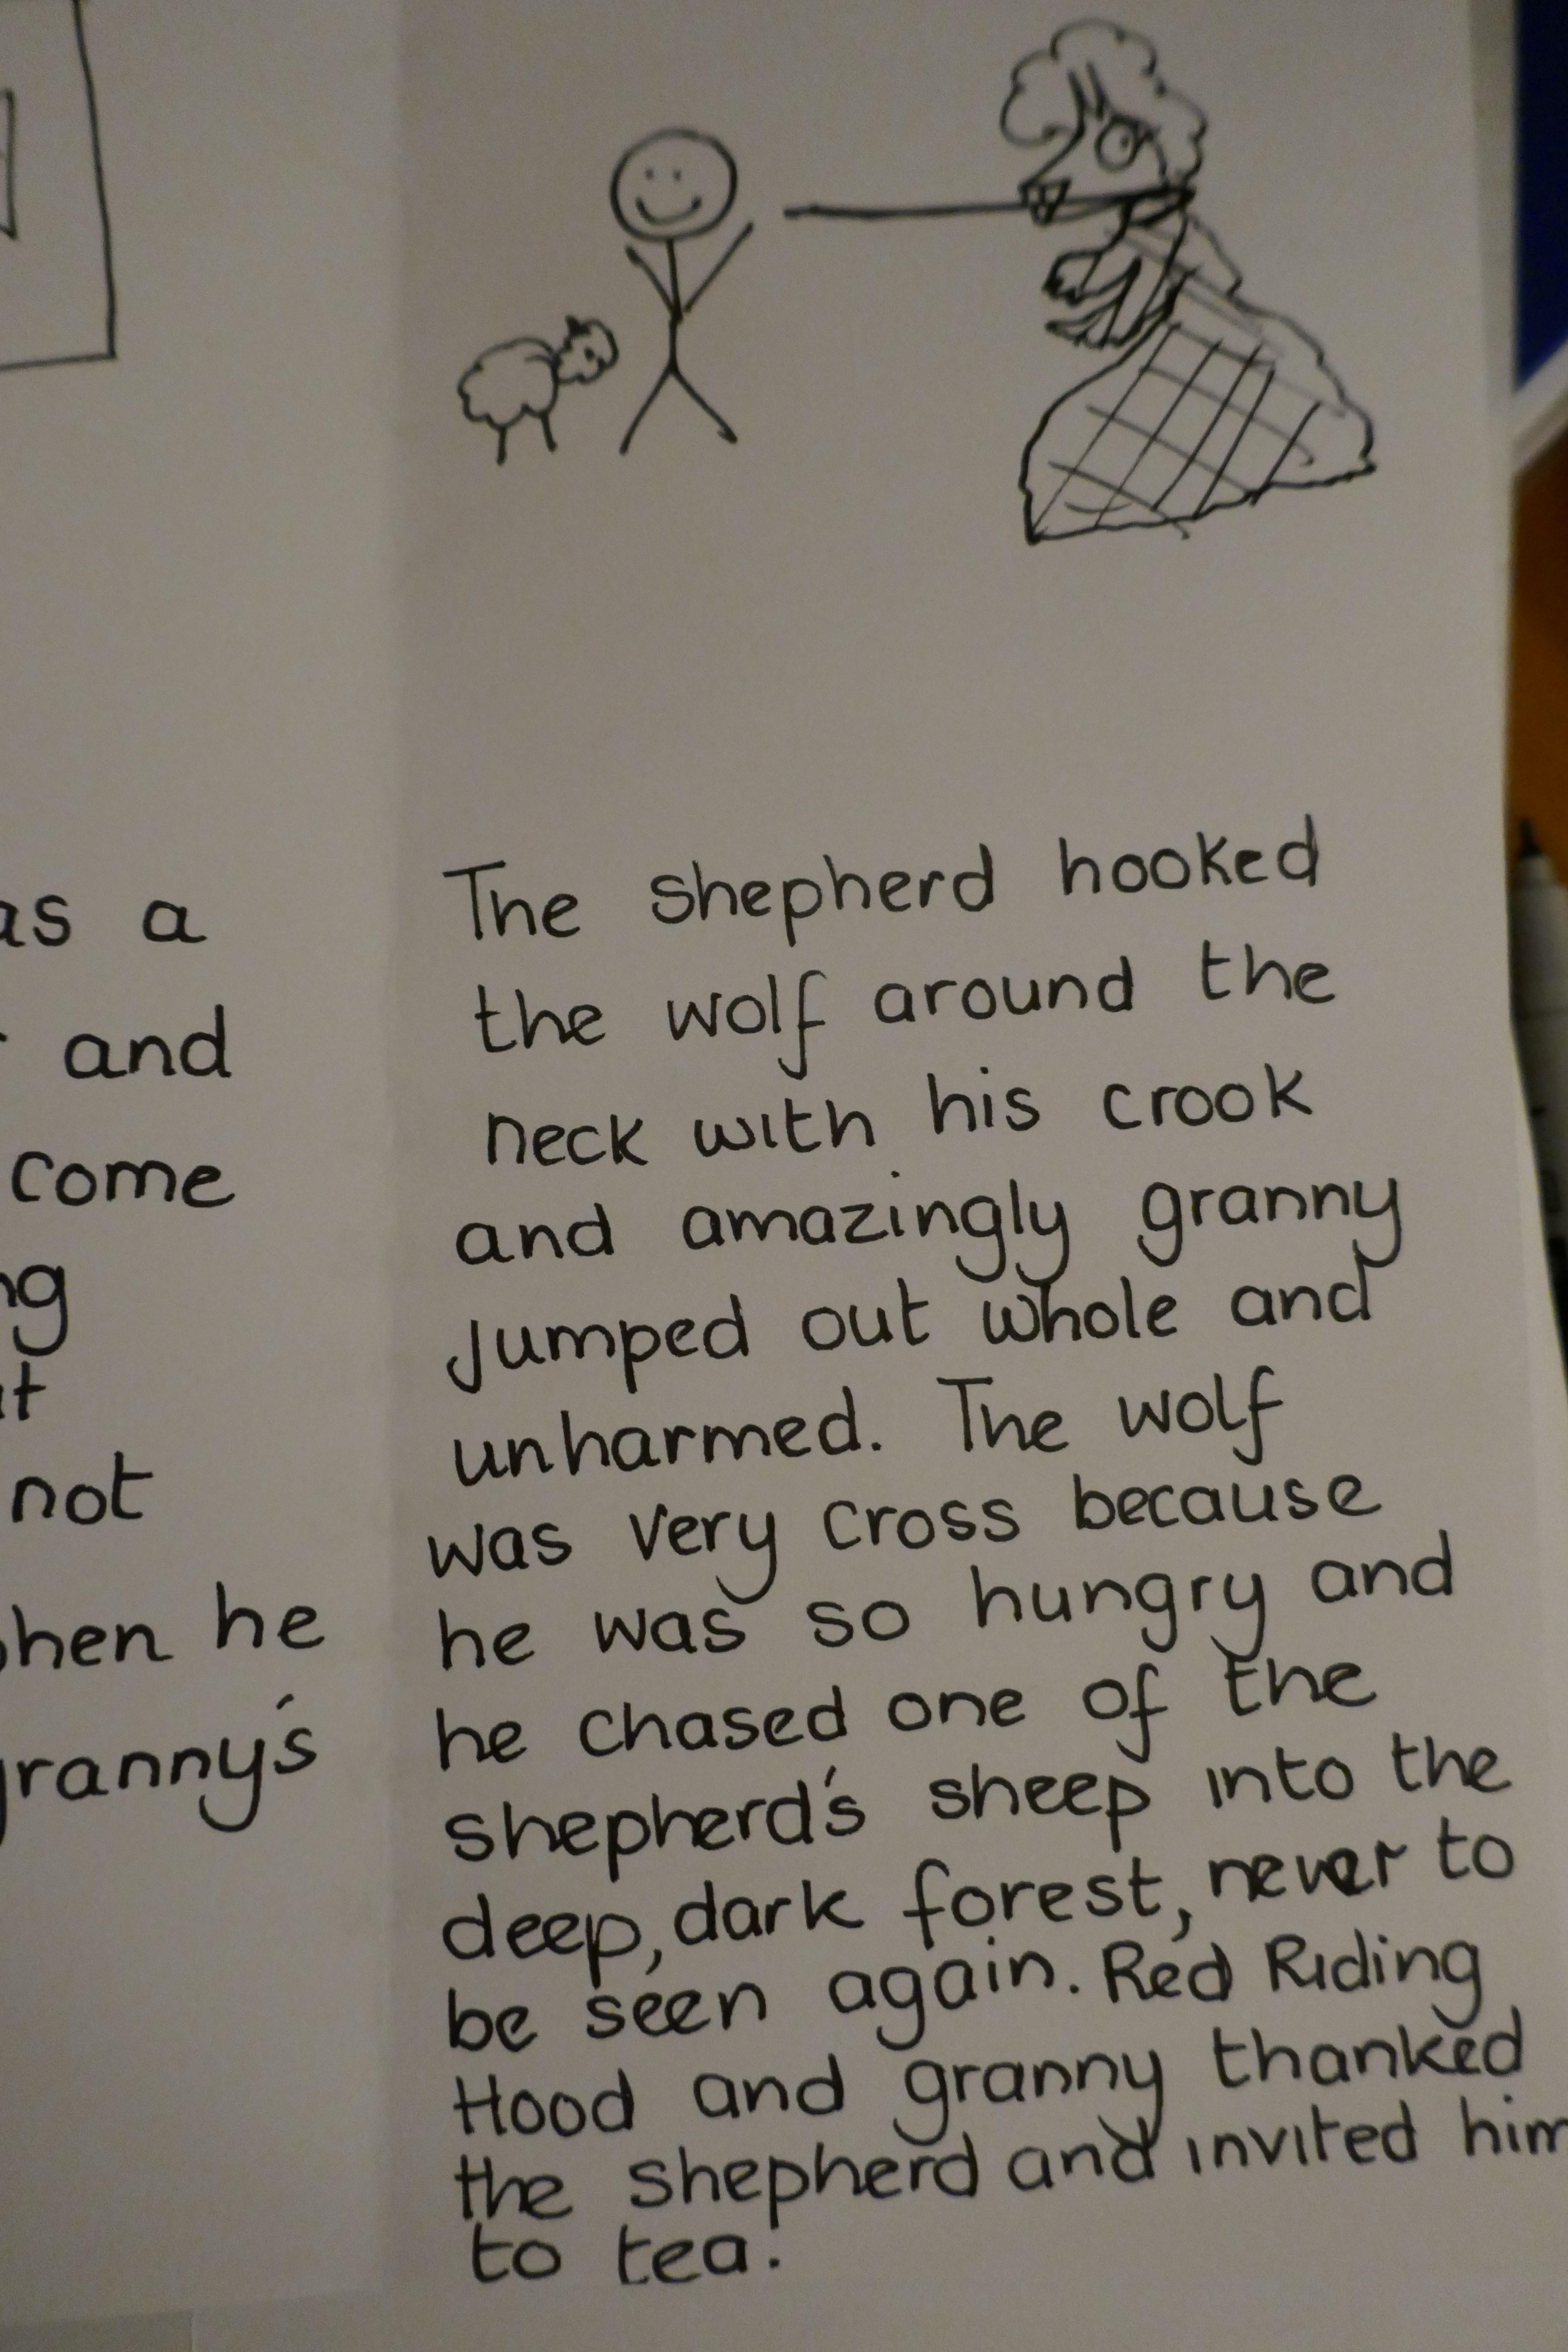 as a
and
come
not
when he
granny's
The shepherd hooked
the wolf around the
neck with his crook
and amazingly granny
jumped out whole and
unharmed. The wolf
was very cross because
he was so hungry and
he chased one of the
shepherd's sheep into the
deep, dark forest, never to
be seen again. Red Riding
Hood and granny thanked
the shepherd and invited him
to tea.